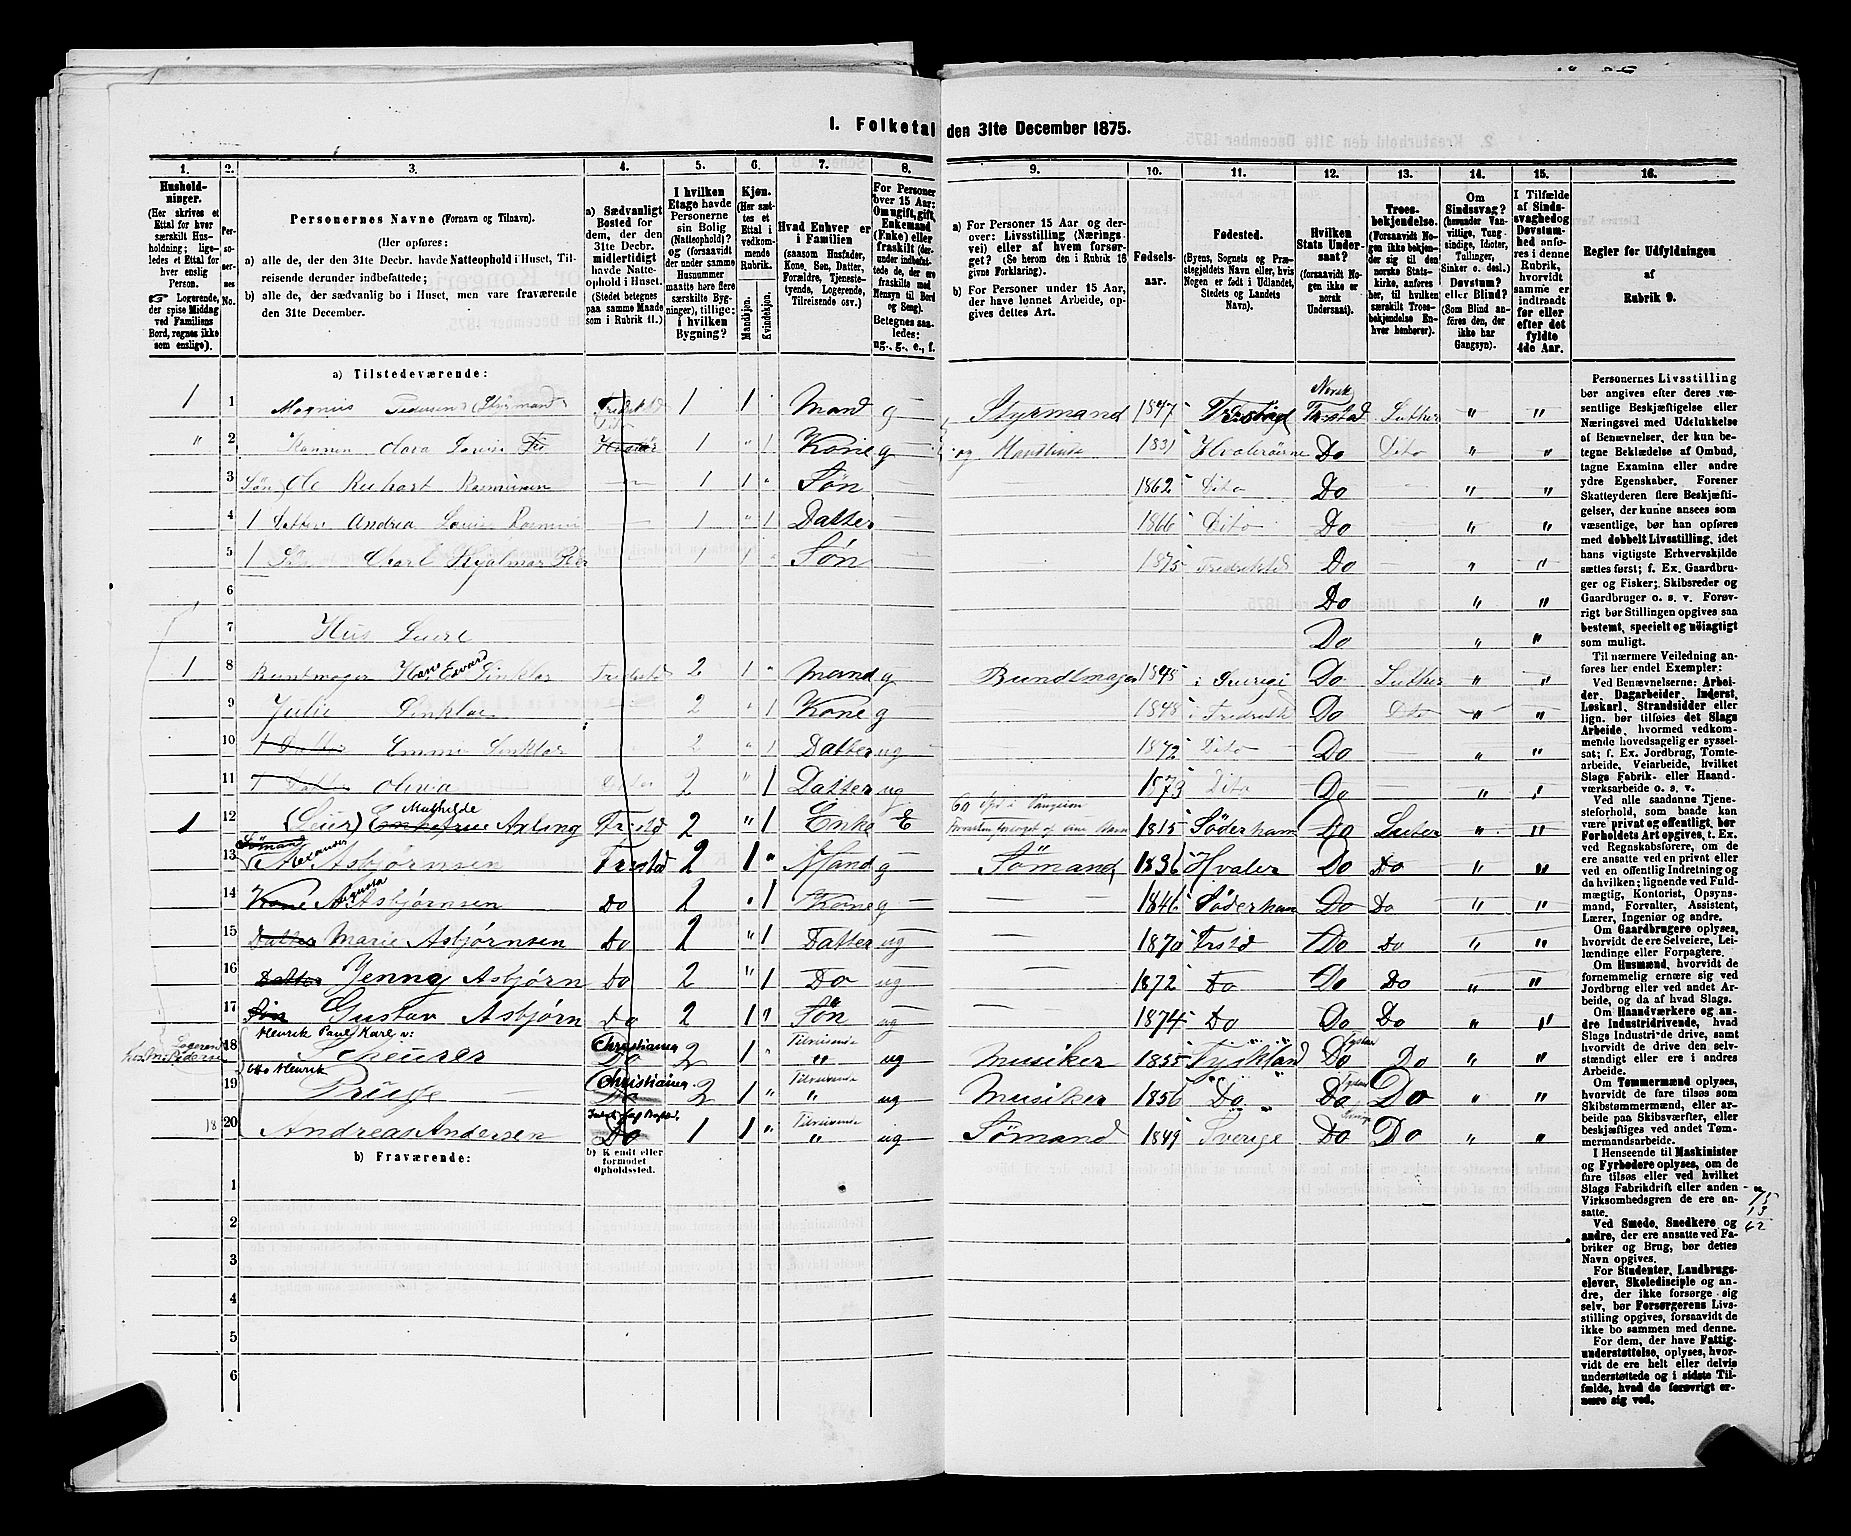 1. Folketal den 31te December 1875.
1.
2.
3.
4.
5.
6.
7.
8.
9.
10.
11.
12.
13.
14.
15.
16.
Husholdninger.
(Her skrives et
Ettal for hver
særskilt Husholdning;
ligeledes
et Ettal for
hver enslig
Person.
☞ Logerende,
der spise Middag
ved Familiens
Bord, regnes ikke
som enslige).
Personernes No.
Personernes Navne (Fornavn og Tilnavn).
(Her opføres:
a) alle de, der den 31te Decbr. havde Natteophold i Huset, Tilreisende
derunder indbefattede;
b) alle de, der sædvanlig bo i Huset, men vare fraværende
den 31te December.
a) Sædvanligt
Bosted for
dem, der den
31te Decbr.
midlertidigt
havde Natteophold
i Huset.
(Stedet betegnes
paa samme Maade
som i Rubrik 11.)
I hvilken
Etage havde
Personerne
sin Bolig
(Natteophold)?
(forsaavidt
der under samme
Husnummer
maatte høre flere
særskilte Bygninger,
tillige:
i hvilken
Bygning?
Kjøn.
(Her sættes
et
Ettal i
vedkommende
Rubrik.)
Mandkjøn.
Kvindekjøn.
Hvad Enhver er
i Familien
(saasom Husfader,
Kone, Søn, Datter,
Forældre, Tjenestetyende,
Logerende,
Tilreisende osv.)
For
Personer
over 15 Aar:
Om ugift, gift,
Enkemand
(Enke) eller
fraskilt
Betegnes saaledes:
ug., g., e., f.
a) For Personer 15 Aar og derover:
Livsstilling (Næringsvei)
eller af hvem forsørget?
(Se herom den i Rubrik 16
givne Forklaring).
b) For Personer under 15 Aar,
der have lønnet Arbeide, opgives
dettes Art.
Fødselsaar.
Fødested.
(Byens, Sognets og Præstegjeldets
Navn eller, hvis
Nogen er født i Udlandet,
Stedets og Landets
Navn).
Hvilken
Stats Undersaat?
(forsaavidt Nogen
ikke er
norsk
Undersaat).
Troesbekjendelse.
(Forsaavidt Nogen
ikke bekjender
sig til den
norske Statskirke,
anføres
her, til hvilken
særskilt Troesbekjendelse
Enhver
henhører).
Om
Sindssvag?
(herunder Vanvittige,
Tungsindige,
Idioter,
Tullinger,
Sinker o. desl.)
Døvstum?
eller Blind?
(Som Blind anføres
den, der
ikke har
Gangsyn).
I Tilfælde
af Sindssvaghed
og
Døvstumhed
anføres
i denne
Rubrik,
hvorvidt
samme er
indtraadt
før eller
efter det
fyldte
4de Aar.
Regler for Udfyldningen
af
Rubrik 9.
a) Tilstedeværende:
1 1 Magnus Pedersen (Styrmand) Fredrikstad 1 1 Mand g Styrmand 1847 Frstad Norsk Luther " "
" 2 Konen Clara 1 " 1 Kone g 1831 Hvaløerne Do Dito " "
3 Søn Ole Rasmusen 1 1 " Søn 1862 Dito Do " "
1 4 Datter Andrea Louise 1 " 1 Datter 1866 Dito Do " "
1 5 Søn Charl Hjalmar 1 1 Søn 1875 Fredrikstad Do " "
6 Do " "
7 Hus Leiere Do " "
1 8 Buntmager Edvard Sinklar Fredstad 2 1 " Mand g Bundtmager 1845 i Sverige Do Luther " "
9 Julie Sinklar 2 " 1 Kone g 1848 i Fredrikstad Do Dito " "
10 Datter Emma Sinklar 2 " 1 Datter ug 1872 Dito Do " "
11 Datter Olivia 2 " 1 Datter ug 1873 Dito Do " "
1 12 (Leier) Mathilde Arling Frstd 2 " 1 Enke E 1815 Söderham Do Luter " "
13 Sømand Alexander Asbjørnsen Frstad 2 1 " Mand g Sømand 1836 Hvaler Do Do " "
14 Kone Agusta Asbjørnsen Do 2 " 1 Kone g 1846 Söderham Do Do " "
15 Datter Marie Asbjørnsen Do 2 " 1 Datter ug 1870 Frstd Do Do " "
16 Datter Jenny Asbjørn Do 2 " 1 Do ug 1872 Do Do Do " "
17 Søn Gustav Asbjørn Do 2 1 " Søn ug 1874 Do Do Do " "
Logerende
18 Henrik Paul Karl v: Scheurer Christiania 2 1 " Tilreisende ug Musiker 1855 Tyskland Do Do " "
19 Otto Henrik Christiania 2 1 " Tilreisende ug Musiker 1856 Do Do Do " "
20 Andreas Andersen Do 1 1 " Tilreisende ug Sømand 1849 Sverige Do Do " "
b) Fraværende:
b) Kendt eller
formodet
Opholdssted.
1
2
3
4
5
6
Personernes Livsstilling
bør angives efter deres væsentlige
Beskjæftigelse eller
Næringsvei med Udelukkelse
af Benævnelser, der kun betegne
Beklædelse af Ombud,
tagne Examina eller andre
ydre Egenskaber. Forener
Skatteyderen flere Beskjæftigelser,
der kunne ansees som
væsentlige, bør han opføres
med dobbelt Livsstilling, idet
hans vigtigste Erhvervskilde
sættes først; f. Ex. Gaardbruger
og Fisker; Skibsreder og
Gaardbruger o. s. v. Forøvrigt
bør Stillingen opgives saa
bestemt, specielt og nöiagtigt
som muligt.
Til nærmere Veiledning anføres
her endel Exempler:
Ved Benævnelserne: Arbeider,
Dagarbeider, Inderst,
Løskarl, Strandsidder eller
lign. bør tilføies det Slags
Arbeide, hvormed vedkommende
hovedsagelig er sysselsat;
f. Ex. Jordbrug, Tomtearbeide,
Veiarbeide, hvilket
Slags Fabrik- eller Haandværksarbeide
o. s. v.
Ved alle saadanne Tjenesteforhold,
som baade kunne
være privat og offentligt, bør
Forholdets Art opgives, t. Ex.
ved Regnskabsførere, om de
ere ansatte ved en privat eller
ved en offentlig Indretning og
da hvilken; lignende ved Fuldmægtig,
Kontorist, Opsynsmand,
Forvalter, Assistent,
Lærer, Ingeniør og andre.
Om Gaardbrugere oplyses,
hvorvidt de ere Selveiere, Leilændinge
eller Forpagtere.
Om Husmænd, hvorvidt de
fornemmelig ernære sig ved
Jordbrug eller ved andet Arbeide,
og da af hvad Slags.
Om Haandværkere og andre
Industridrivende, hvad
Slags Industri de drive, samt
hvorvidt de drive den selvstændigt
eller ere i andres
Arbeide.
Om Tømmermænd oplyses,
hvorvidt de fare tilsøs som
Skibstømmermænd, eller arbeide
paa Skibsværfter, eller
beskjæftiges ved andet Tømmermandsarbeide.
I Henseende til Maskinister
og Fyrbødere oplyses, om de
fare tilsøs eller ved hvilket
Slags Fabrikdrift eller anden
Virksomhedsgren de ere ansatte.
Ved Smede, Snedkere og
andre, der ere ansatte ved Fabriker
og Brug, bør dettes
Navn opgives.
For Studenter, Landbrugselever,
Skoledisciple og andre,
der ikke forsørge sig
selv, bør Forsørgerens Livsstilling
opgives, forsaavidt de
ikke bo sammen med denne.
For dem, der have Fattigunderstøttelse,
oplyses, hvorvidt
de ere helt eller delvis
understøttede og i sidste Tilfælde,
hvad de forøvrigt ernære
sig ved.
75
13
62